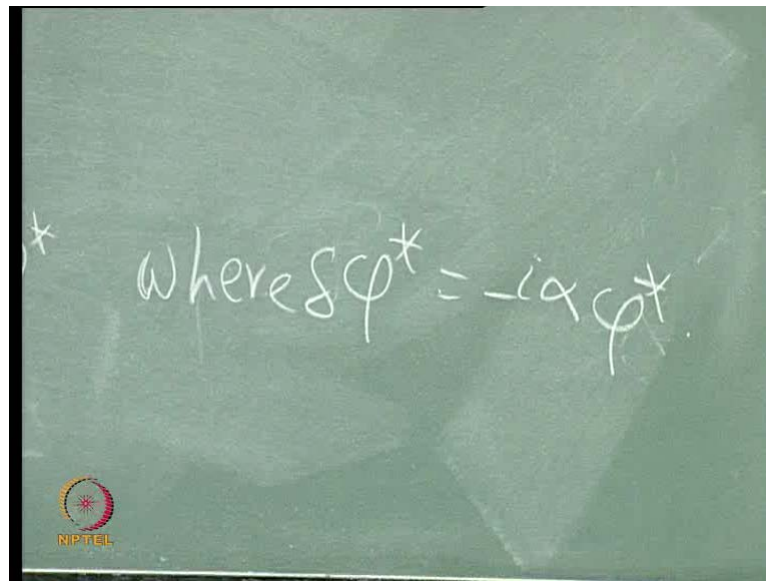 * where δφ* = -iαφ*.
NPTEL